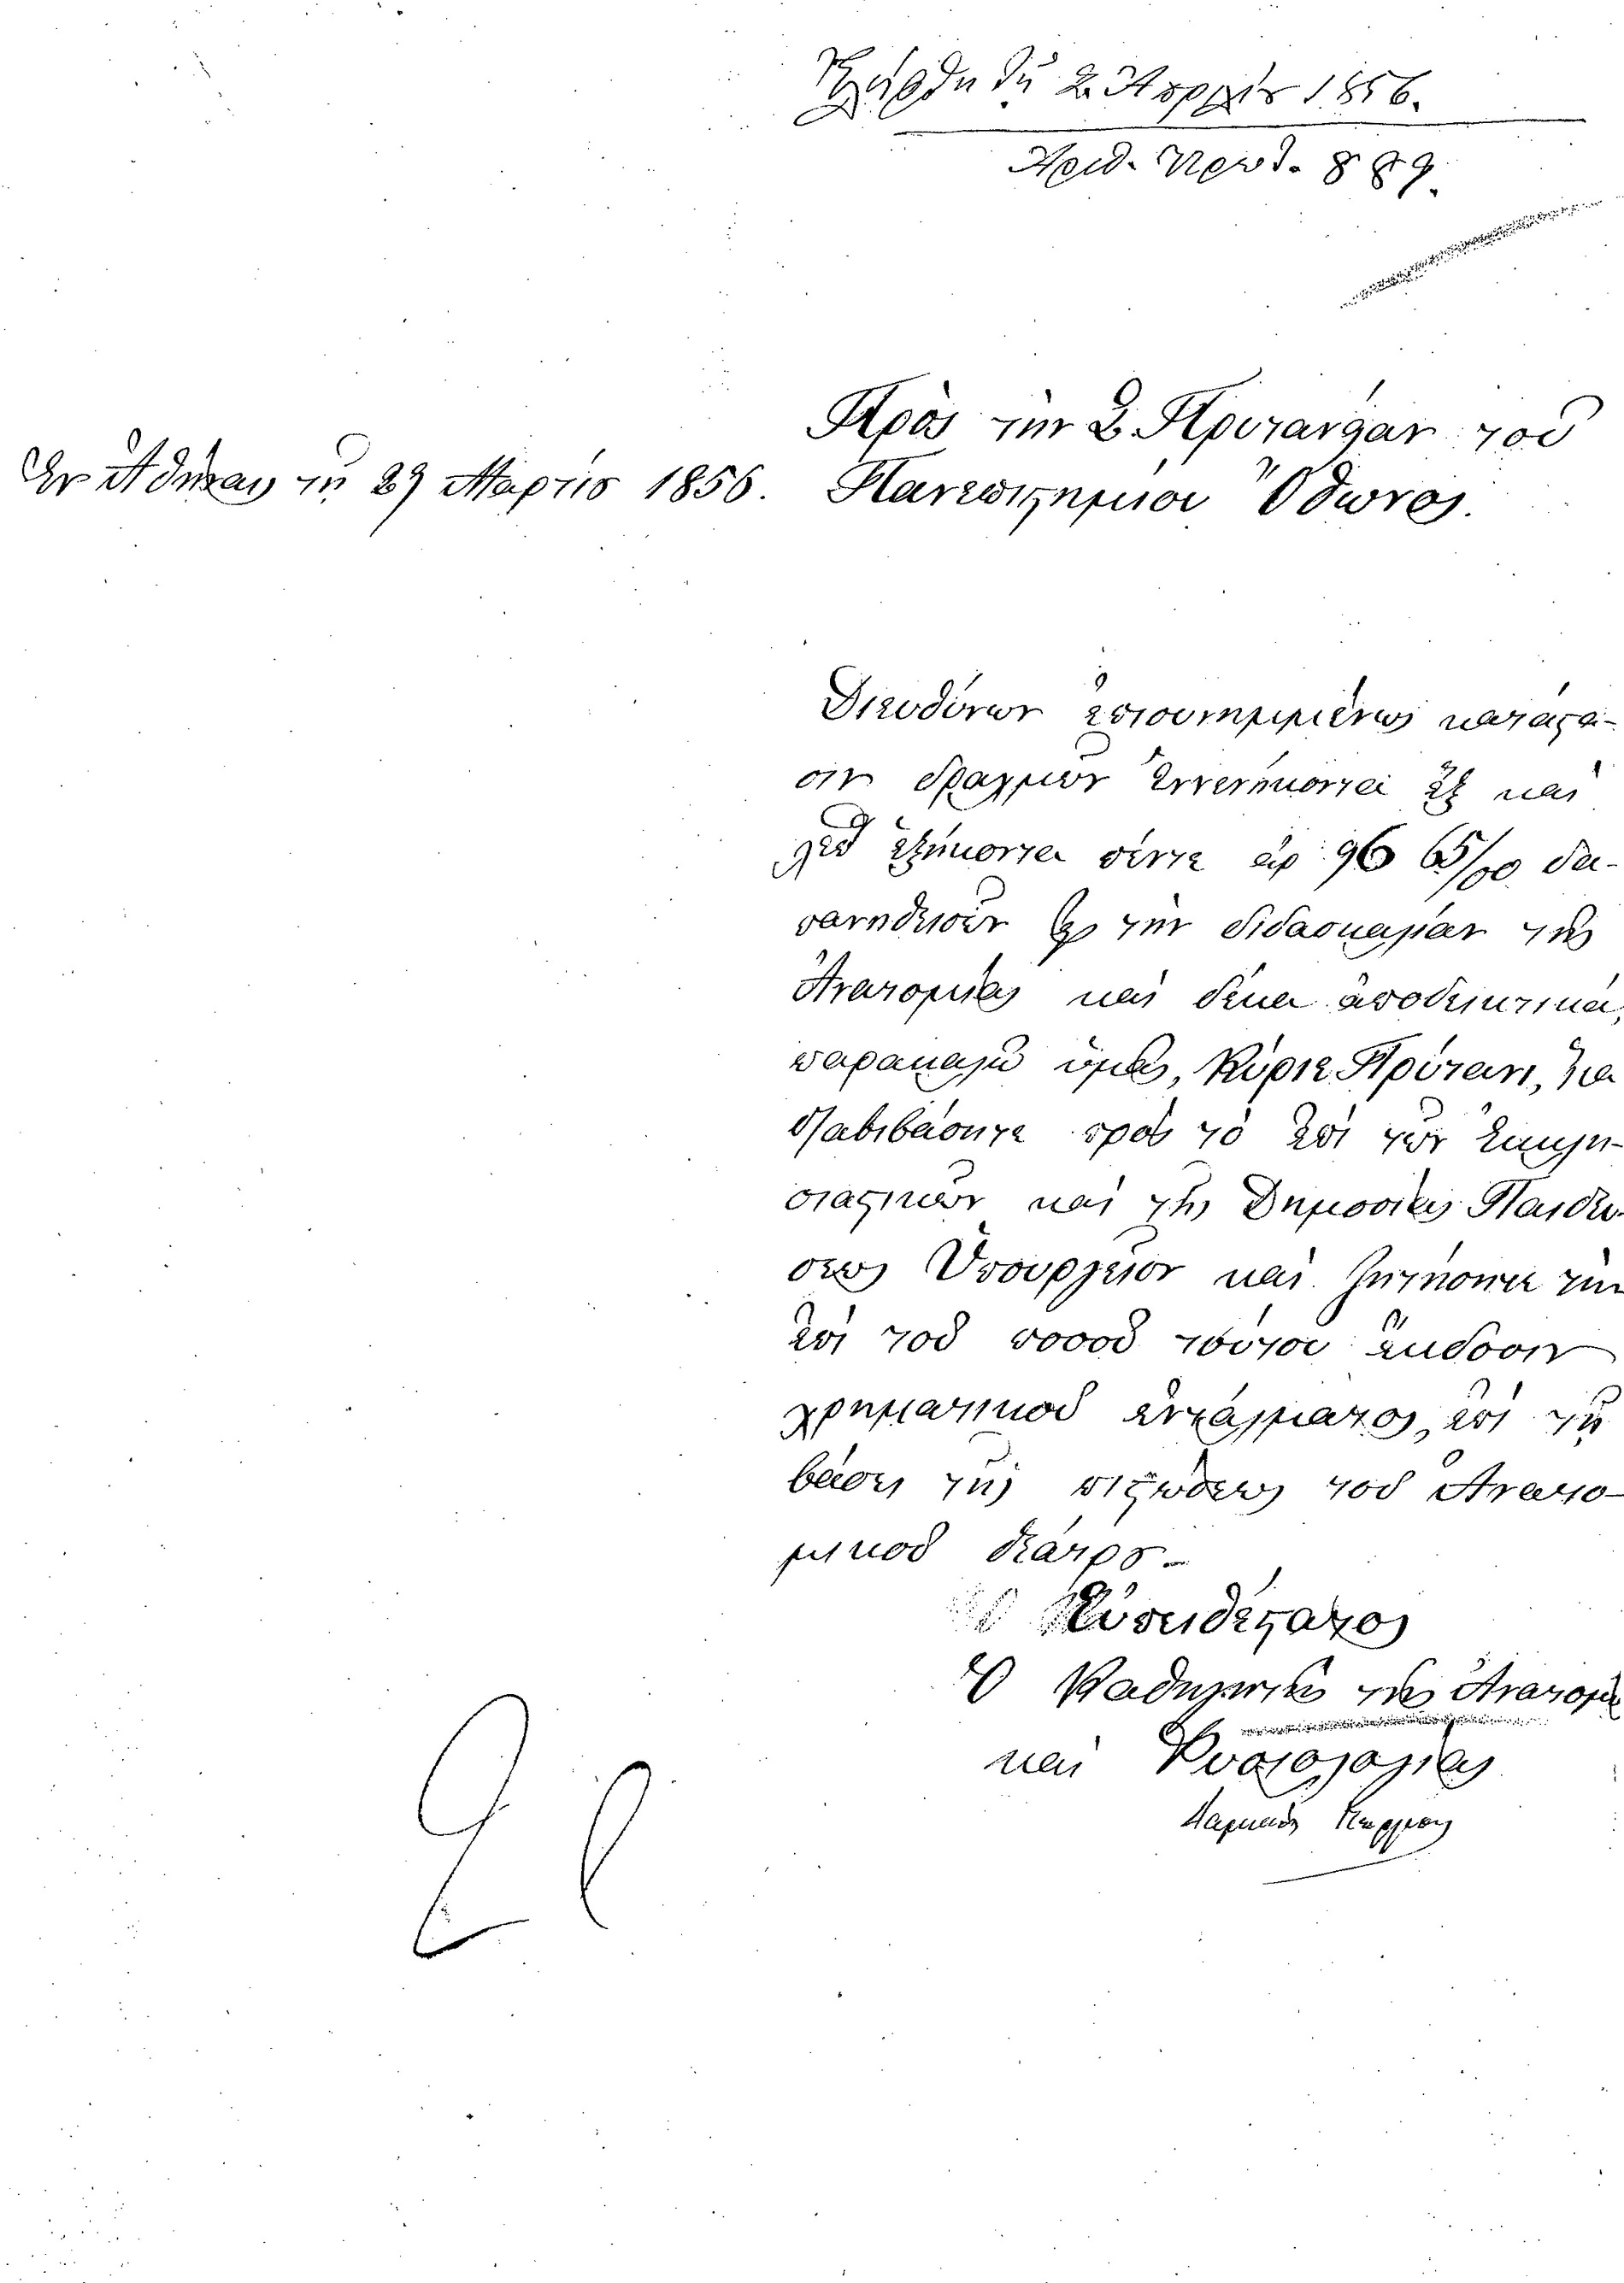 Ἐλήφθη τῇ 2 Ἀπριλίου 1856.
Ἀριθ. Πρωτ. 889
Πρὸς τὴν Σ. Πρυτανείαν τοῦ
Ἐν Ἀθήναις τῇ 29 Μαρτίου 1856.
Πανεπιστημίου Ὄθωνος.
Ὑποθέτων ἐσωσημμένως κατάστα-
σιν δραχμῶν ἐννενήκοντα ἓξ καὶ
λεπτ ἑξήκοντα πέντε ἀρ. 96 65/00 δα-
πανηθεισῶν εἰς τὴν διδασκαλίαν τῆς
Ἀνατομίας καὶ δέκα ἀποδεικτικά,
παρακαλῶ ὑμᾶς, Κύριε Πρύτανι, νὰ
διαβιβάσητε πρὸς τὸ ἐπὶ τῶν Ἐκκλη-
σιαστικῶν καὶ τῆς Δημοσίας Παιδεύ-
σεως Ὑπουργεῖον καὶ ζητήσητε τὴν
ἐπὶ τοῦ ποσοῦ τούτου ἔκδοσιν
χρηματικοῦ ἐντάλματος, ἐπὶ τῇ
βάσει τῆς πιστώσεως τοῦ Ἀνατο-
μικοῦ Θεάτρου.
Ὁ Εὐπειθέστατος
Ὁ Καθηγητὴς τῆς Ἀνατομίας
καὶ Φυσιολογίας
Δαμιανὸς Γεωργίου